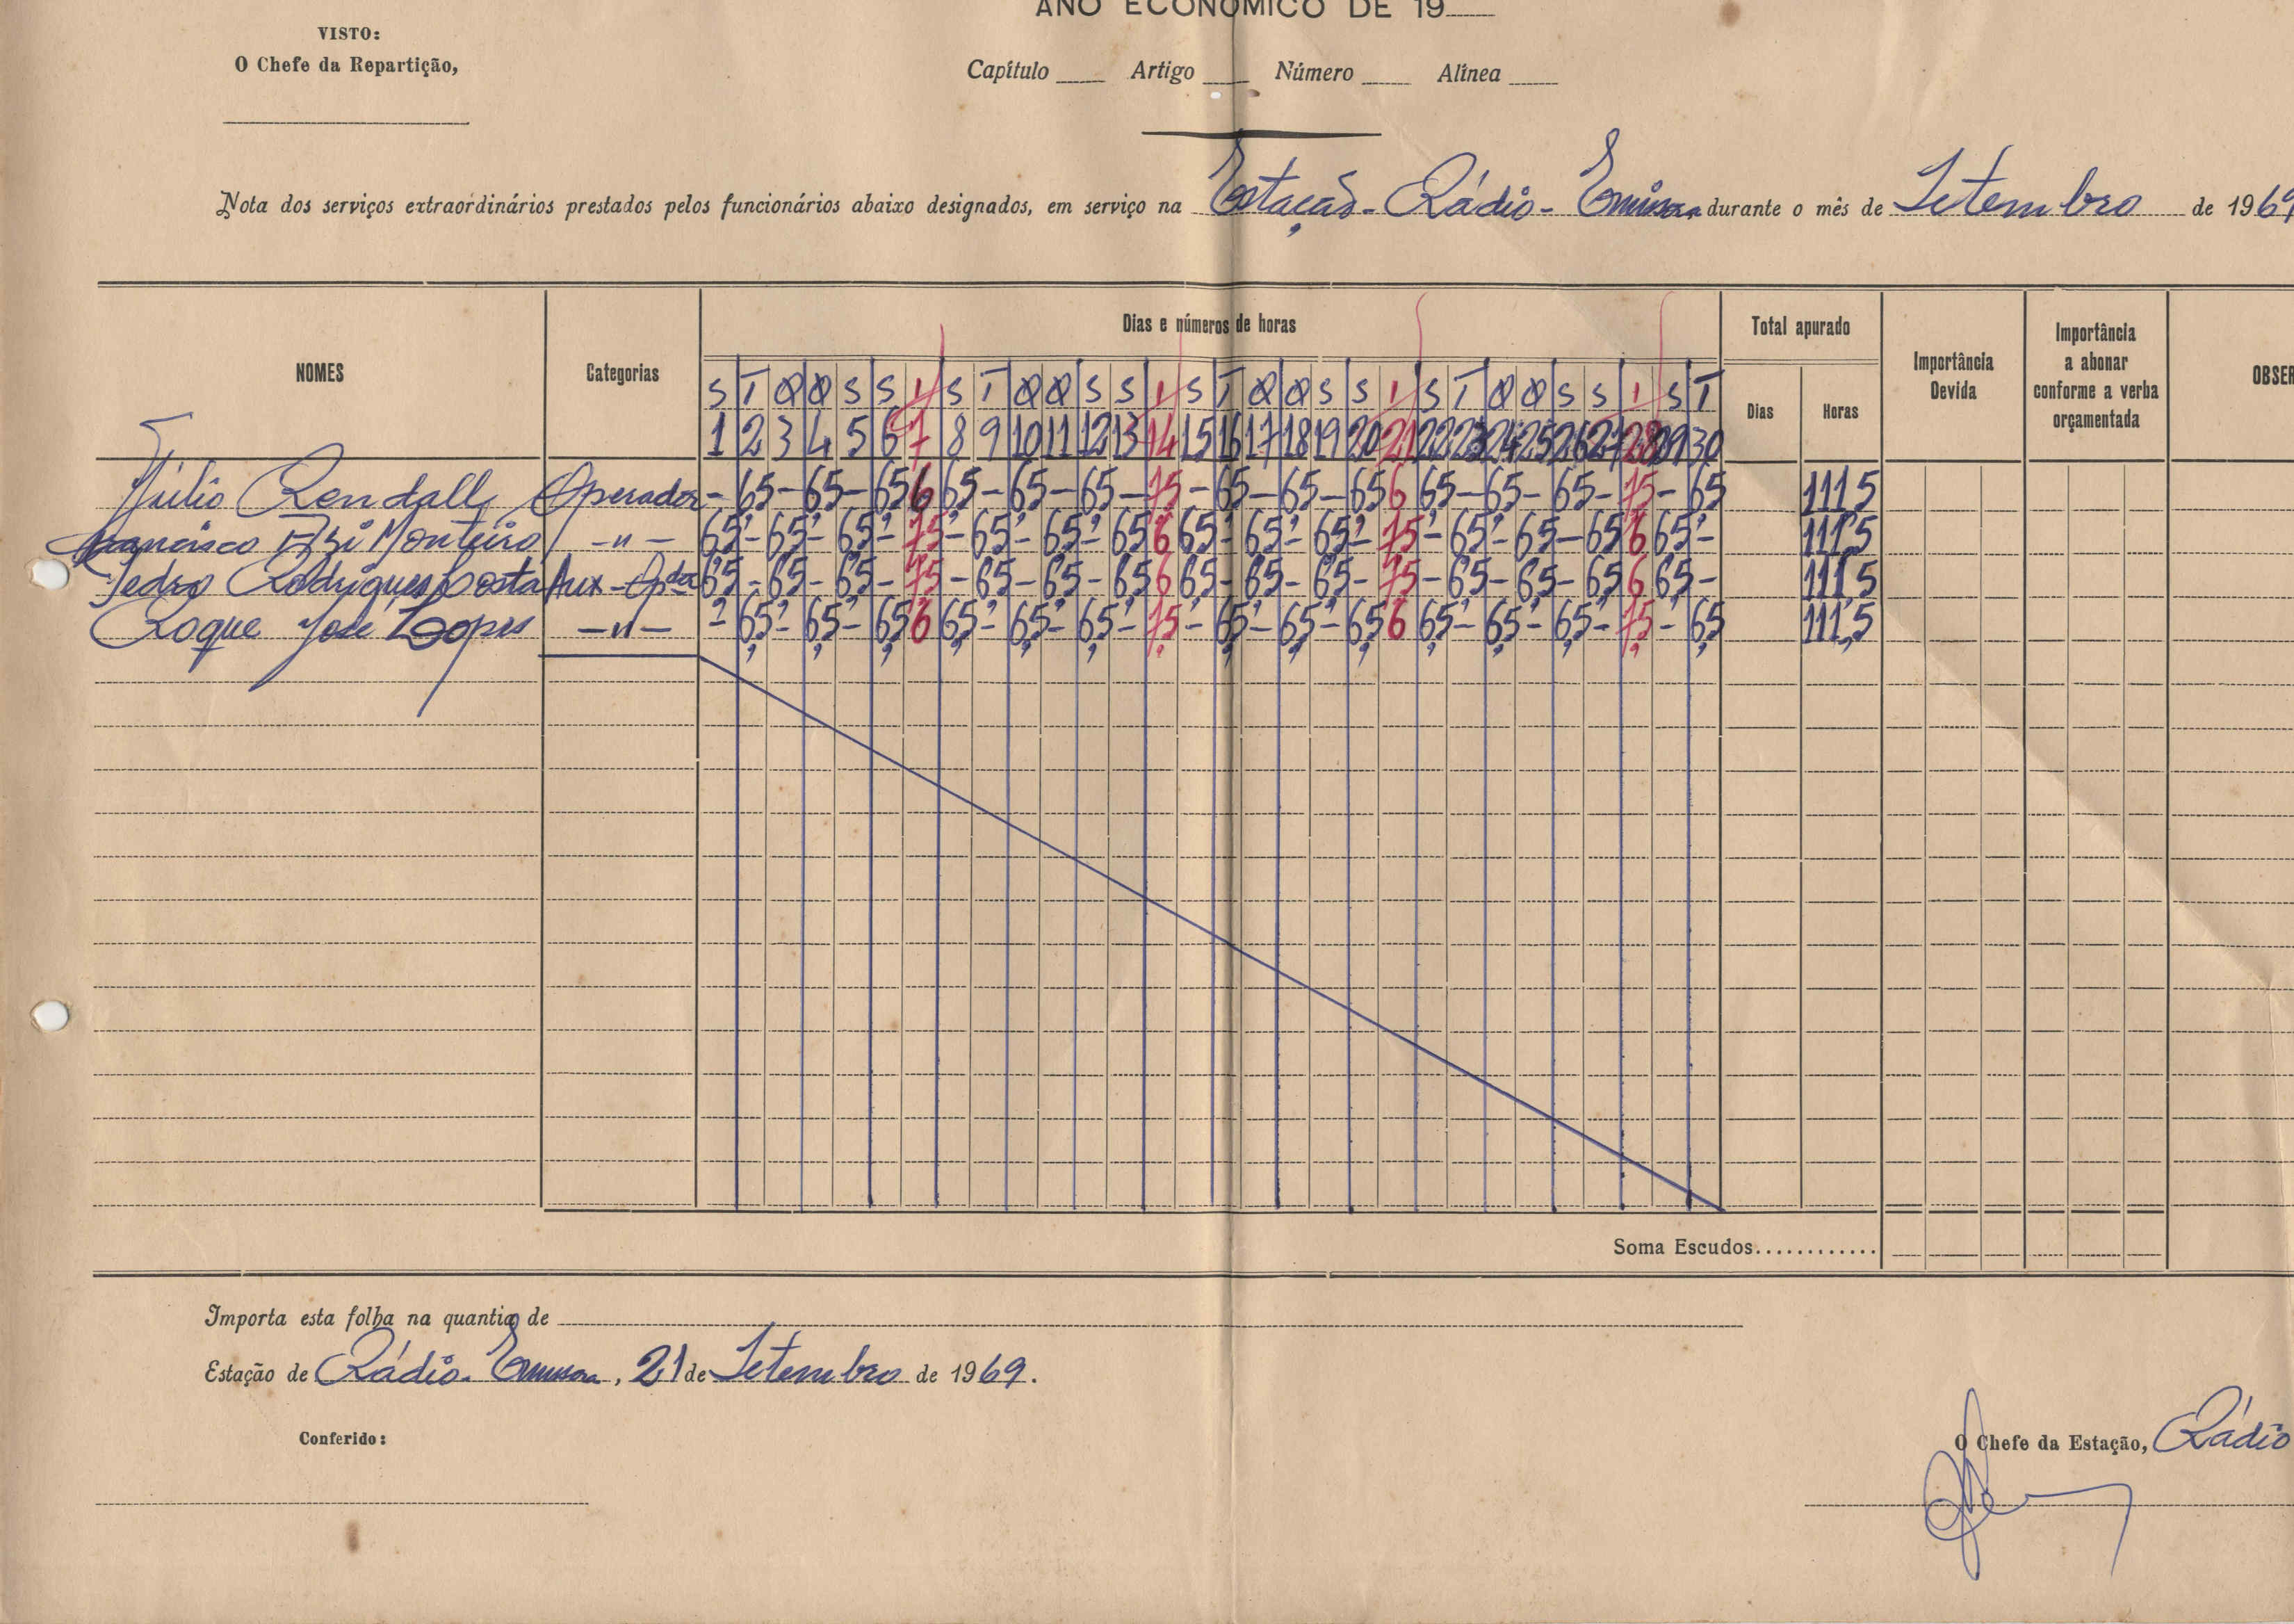 ANO ECONÓMICO DE 19
VISTO:
O Chefe da Repartição,
Capítulo Artigo Número Alínea
Nota dos serviços extraordinários prestados pelos funcionários abaixo designados, em serviço na Estação-Rádio-Emissora durante o mês de Setembro de 1969
NOMES Categorias Dias e números de horas Total apurado Importância Devida Importância a abonar conforme a verba orçamentada OBSER
Dias Horas
S T Q Q S S 1 S T Q Q S S 1 S T Q Q S S 1 S T Q Q S S 1 S T
1 2 3 4 5 6 7 8 9 10 11 12 13 14 15 16 17 18 19 20 21 22 23 24 25 26 27 28 29 30
Júlio Rendall Operador - 65 - 65 - 65 6 65 - 65 - 65 - 75 - 65 - 65 - 65 6 65 - 65 - 65 - 75 - 65 1115
Francisco Monteiro -"- 65 - 65 - 65 - 75 - 65 - 65 - 65 6 65 - 65 - 65 - 75 - 65 - 65 - 65 6 65 - 111,5
Pedro Rodrigues Costa Aux-Opdor 65 - 65 - 65 - 75 - 65 - 65 - 65 6 65 - 65 - 65 - 75 - 65 - 65 - 65 6 65 - 111,5
Roque José Lopes -"- - 6,5 - 6,5 - 6,5 6 6,5 - 6,5 - 6,5 - 7,5 - 6,5 - 6,5 - 6,5 6 6,5 - 6,5 - 6,5 - 7,5 - 6,5 111,5
Soma Escudos............
Importa esta folha na quantia de
Estação de Rádio-Emissora, 21 de Setembro de 1969.
Conferido:
O Chefe da Estação, Rádio